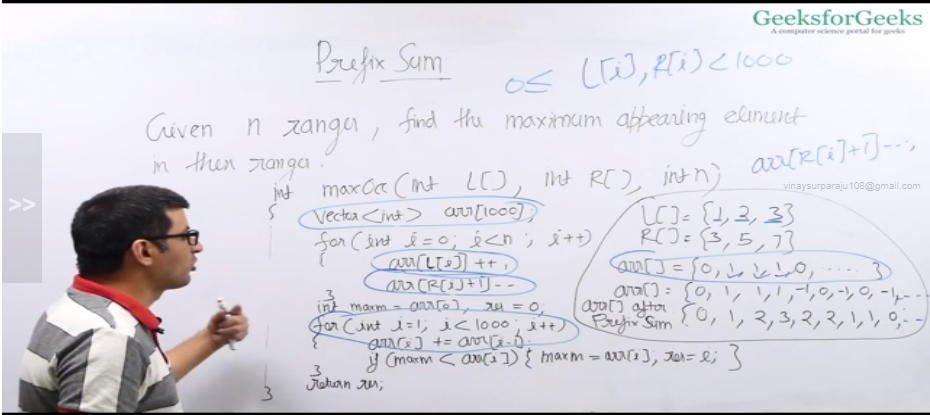 GeeksforGeeks
A computer science portal for geeks
Prefix Sum
0≤ L[i], R[i] < 1000
Given n ranges, find the maximum appearing element
in these ranges.
arr[R[i]+1]--;
int maxOcc(int L[], int R[], int n)
vinaysurparaju108@gmail.com
{
vector<int> arr[1000];
for(int i=0; i<n; i++)
{ arr[L[i]]++;
arr[R[i]+1]--
}
int maxm = arr[0], res = 0;
for(int i=1; i<1000; i++)
{ arr[i] += arr[i-1];
if(maxm < arr[i]) { maxm = arr[i]; res = i; }
}
return res;
}
L[] = {1, 2, 3}
R[] = {3, 5, 7}
arr[] = {0, 1, 1, 1, 0, ..... }
arr[] = {0, 1, 1, 1, -1, 0, -1, 0, -1, ...
arr[] after
Prefix Sum {0, 1, 2, 3, 2, 2, 1, 1, 0, ...
>>